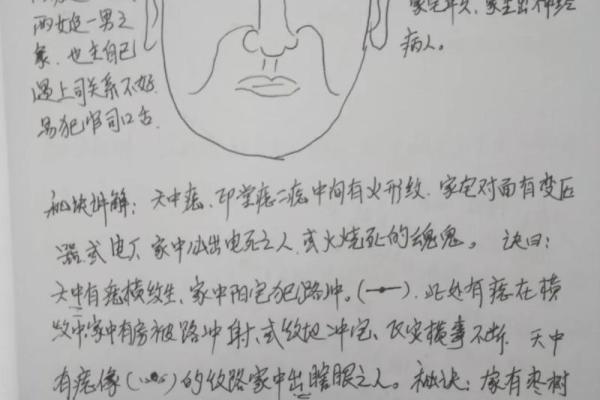 两女追一男之
象.也主自己
遇上司关系不好.
易犯官司口舌.
家宅不安.家里出神经
病人。
秘诀讲解：天中痣.印堂痣二痣中间有火形纹.家宅对面有变压
器或电厂.家中必出电死之人.或火烧死的魂鬼。诀曰：
天中有痣横纹生.家中阳宅犯路冲.(—•—).此处有痣在横
纹中.家中有房被路冲射.或纹地冲宅.灾案横事不断.天中
有痣像(•••)的纹路家中出瞎眼之人。秘诀：家有枣树